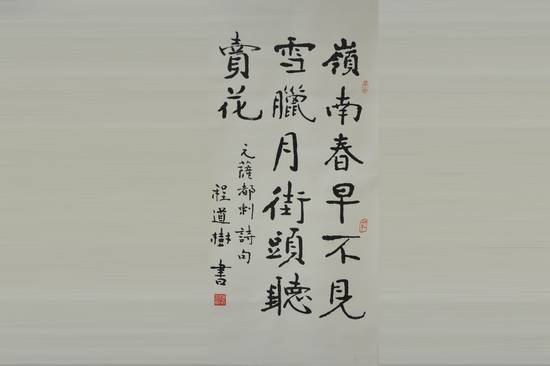 嶺南春早不見
雪臘月街頭聽
賣花
元薩都剌詩句
程道樹書